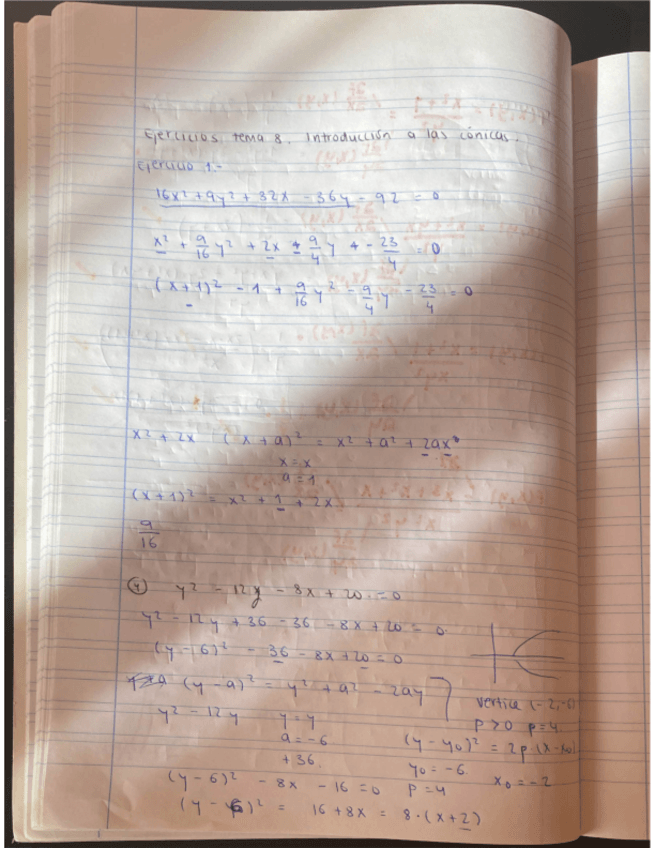 Ejercicios tema 8. Introducción a las cónicas.
Ejercicio 1.-
16x² + 9y² + 32x - 36y - 92 = 0
x² + 9/16 y² + 2x + 9/4 y + - 23/4 = 0
(x+1)² - 1 + 9/16 y² - 9/4 y - 23/4 = 0
x² + 2x (x + a)² = x² + a² + 2ax
x = x
a = 1
(x+1)² = x² + 1 + 2x
9/16
④ y² - 12y - 8x + 20 = 0
y² - 12y + 36 - 36 - 8x + 20 = 0
(y - 6)² - 36 - 8x + 20 = 0
(y - a)² = y² + a² - 2ay
y² - 12y y = y
a = -6
+36.
(y - 6)² - 8x - 16 = 0
(y - 6)² = 16 + 8x = 8·(x+2)
Vertice (-2,-6)
p > 0 p = 4
(y - y₀)² = 2p·(x - x₀)
y₀ = -6 x₀ = -2
p = 4